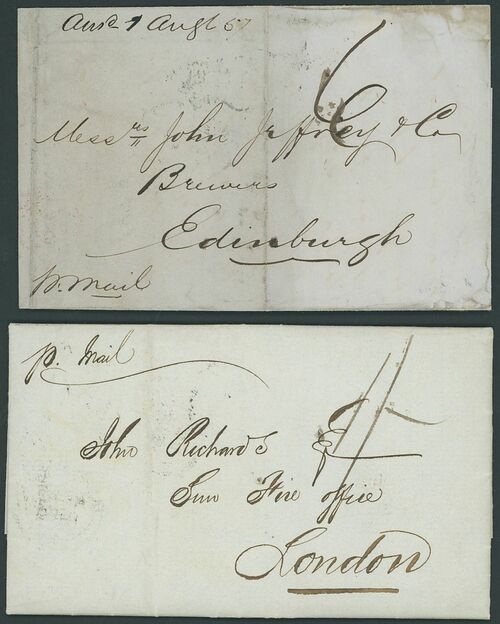 Ansd 1 Augt 57
6
Messrs John Jeffrey & Co
Brewers
Edinburgh
p. Mail
p. Mail
John Richards
Sun Fire office
London